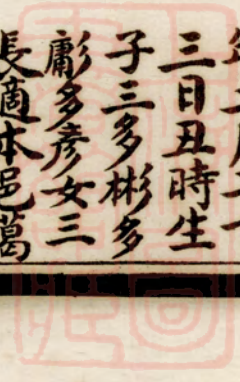 三日丑時生
子三多彬多
彪多彥女三
長適本邑葛